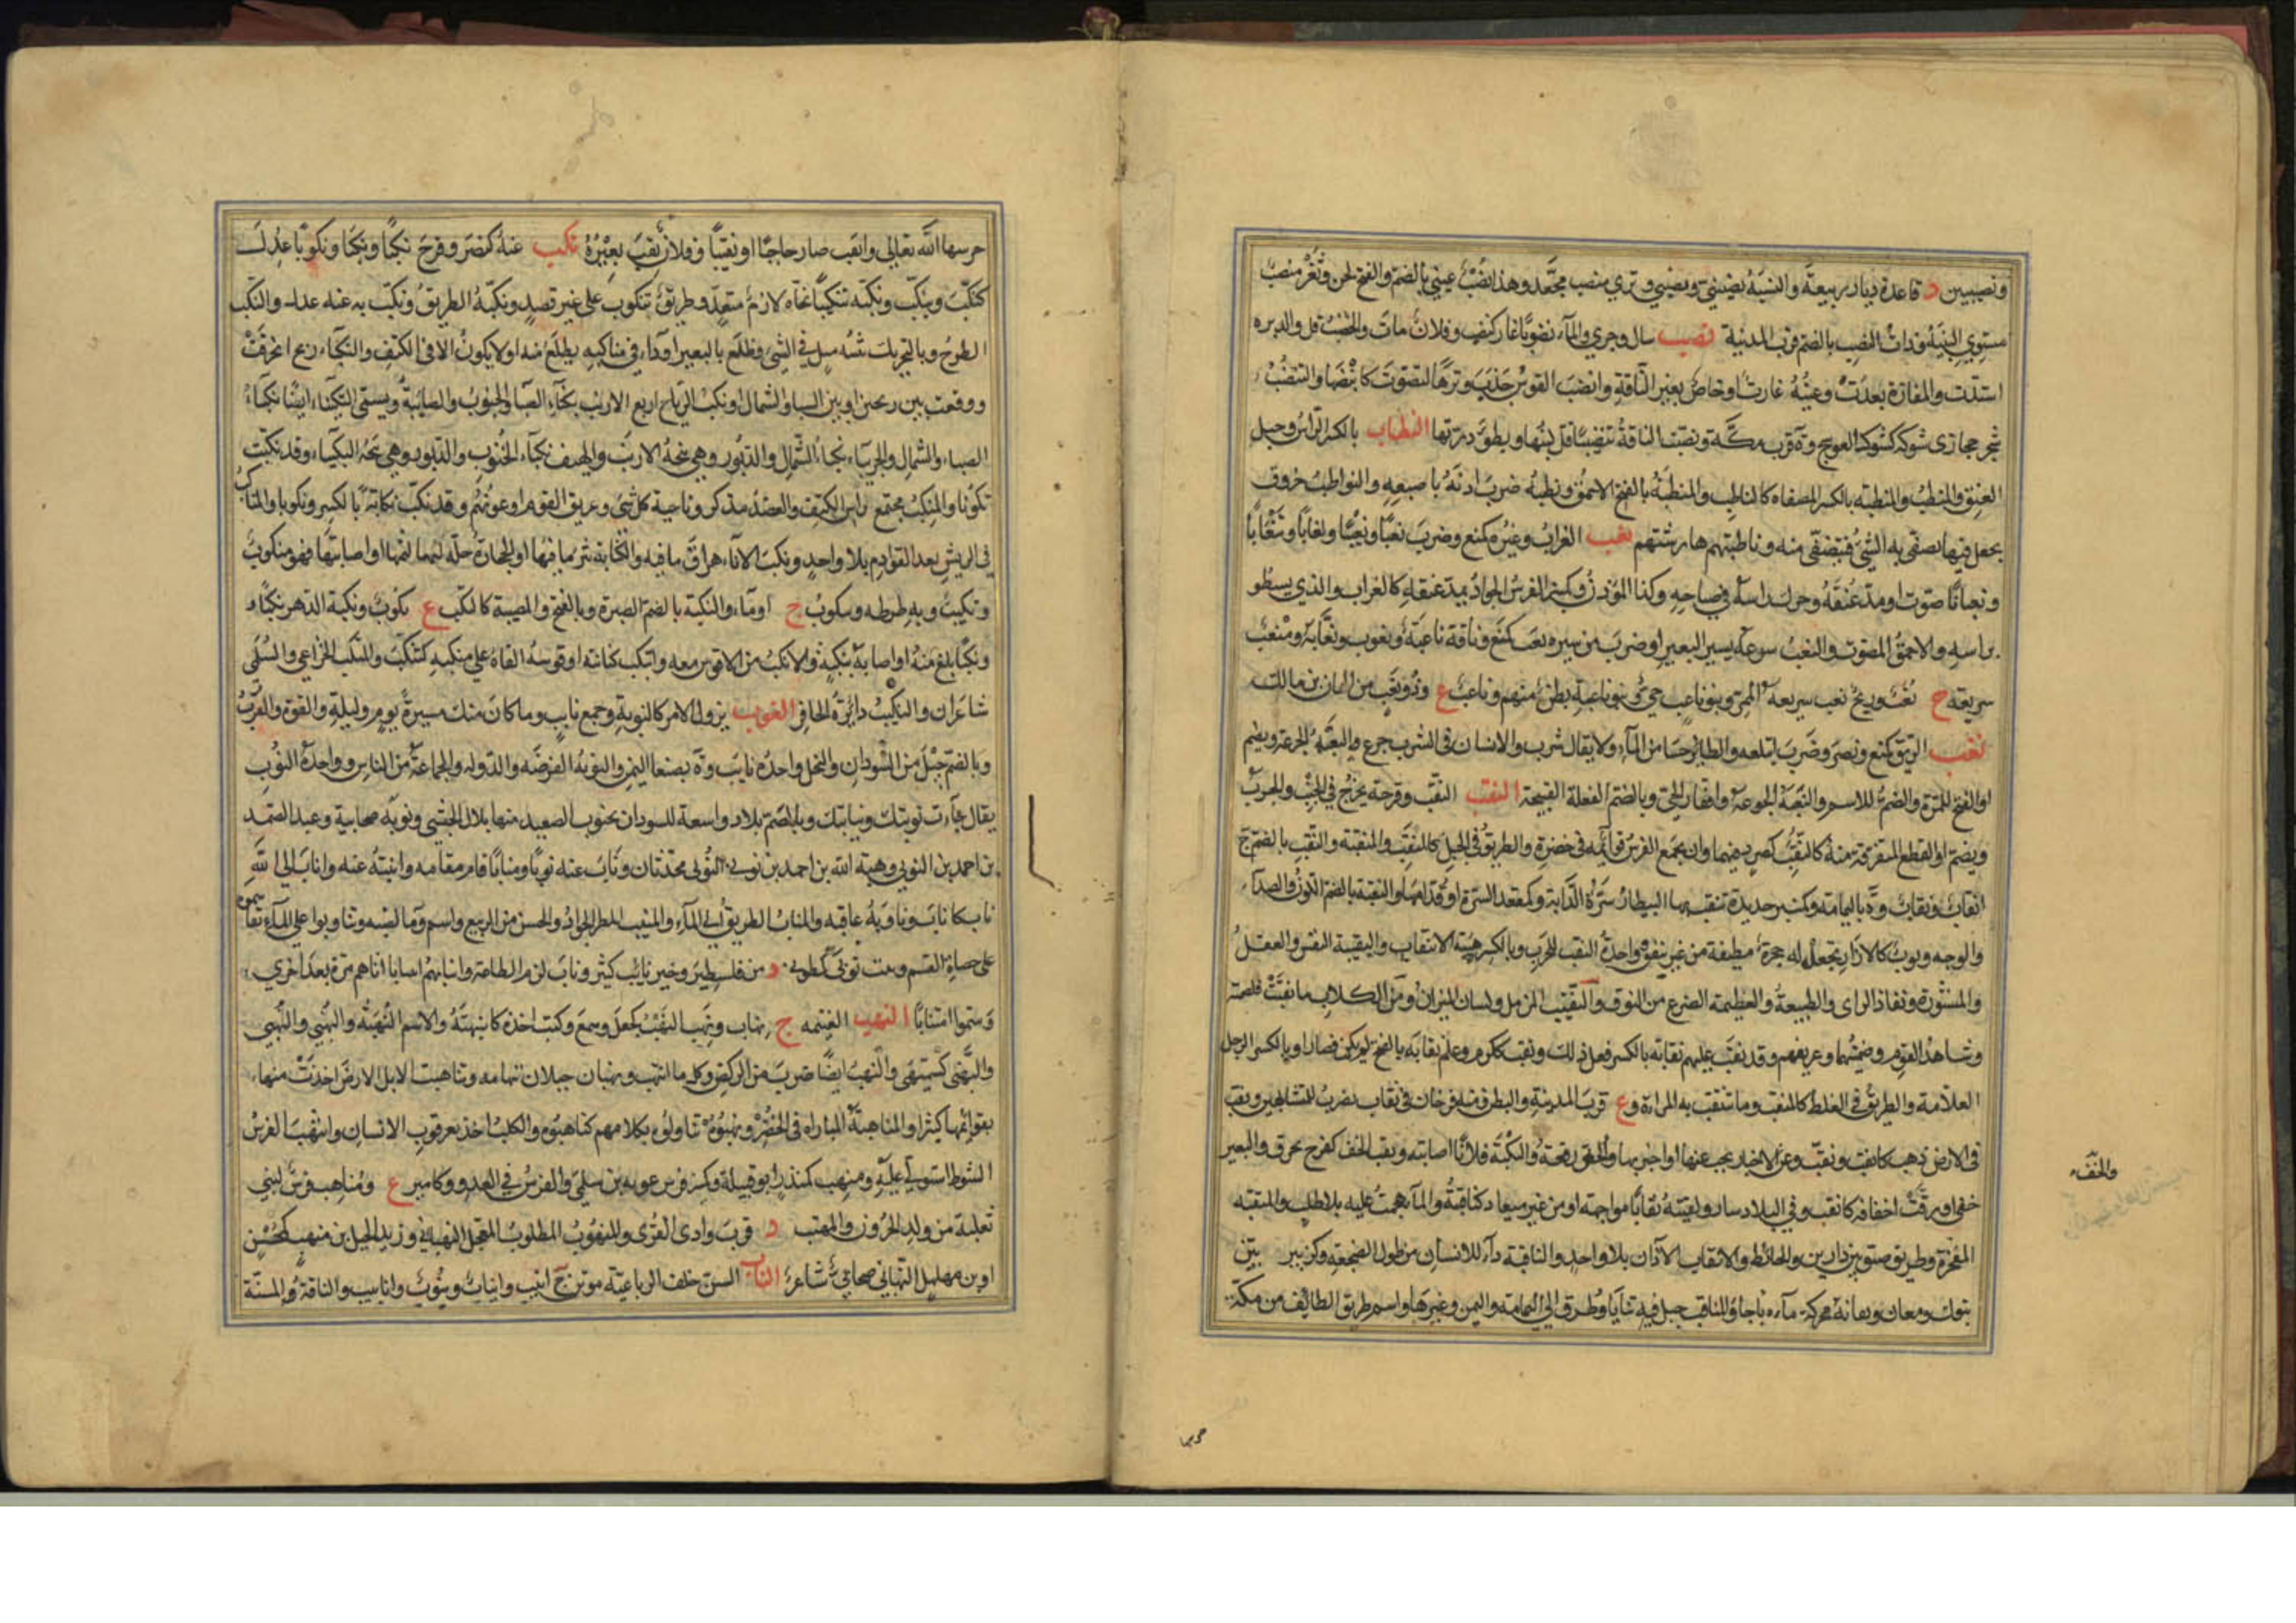 ونصيبين د قاعدة ديار ربيعة والنسبة نصيبيني ونصيبي وثري منصب مجعد وهذا نصب عيني بالضم والفتح لحن وثغر منصب
مستوي النبتة وذات النصب بالضم قرب المدينة نضب سال وجرى والماء نضوبا غار كنضب وفلان مات والخصب قل والدبره
اشتدت والمفازة بعدت وعينه غارت او خاص بعين الناقة وانضب القوس جذب وترها لتصوت كانبضها والتنضب
شجر حجازي شوكه كشوك العوسج وة قرب مكة ونضبت الناقة تنضيبا قل لبنها وبطؤ درتها النطاب بالكسر الراس وحبل
العنق والمنطب والمنطبة بالكسر المصفاه كالناطب والمنطبة بالفتح الاحمق ونطبه ضرب اذنه باصبعه والنواطب خروق
يجعل فيها يصفى به الشئ فيتصفى منه وناطبتهم هارشتهم نعب الغراب وغيره كمنع وضرب نعبا ونعيبا ونعابا وتنعابا
ونعبانا صوت او مد عنقه وحرك راسه في صياحه وكذا المؤذن وكمنبر الفرس الجواد يمد عنقه كالغراب والذي يسطو
براسه والاحمق المصوت والنعب سرعة سير البعير او ضرب من سيره نعب كمنع وناقة ناعبة ونعوب ونعابة ومنعب
سريعة ج نعب وريح نعب سريعة الممر وبنو ناعب حي وبنو ناعبة بطن منهم وناعب ع وذو نعب من الهان بن مالك
نغب الريق كمنع ونصر وضرب ابتلعه والطائر حسا من الماء ولا يقال شرب والانسان في الشرب جرع والنغبة الجرعة ويضم
او الفتح للمرة والضم للاسم والنغبة الجوعة واقفار الحي وبالضم الفعلة القبيحة النقب الثقب وقرحة تخرج في الجنب والجرب
ويضم او القطع المتفرقة منه كالنقب كصرد فيهما وان يجمع الفرس قوائمه في حضره والطريق في الجبل كالمنقب والمنقبة والنقب بالضم ج
انقاب ونقاب وة باليمامة وكمنبر حديدة تنقب بها البيطار سرة الدابة وكمقعد السرة او قدامها والنقبة بالضم اللون والصدأ
والوجه وثوب كالازار تجعل له حجزة مطيفة من غير نيفق وواحدة النقب للجرب وبالكسر هيئة الانتقاب والنقيبة النفس والعقل
والمشورة ونفاذ الراى والطبيعة والعظيمة الضرع من النوق والنقيب المزمار ولسان الميزان ومن الكلاب ما نقبت غلصمته
وشاهد القوم وضمينهم وعريفهم وقد نقب عليهم نقابة بالكسر فعل ذلك ونقب ككرم وعلم نقابة بالفتح لم يكن فصار او بالكسر الرجل
العلامة والطريق في الغلظ كالمنقب وما تنتقب به المراة وع قرب المدينة والبطن ومنه فرخان في نقاب يضرب للمتشابهين ونقب
في الارض ذهب كانقب ونقب وعن الاخبار بحث عنها او اخبر بها والخف رقعه والنكبة فلانا اصابته ونقب الخف كفرح تخرق والبعير
حفي او رقت اخفافه كانقب وفي البلاد سار ولقيته نقابا مواجهة او من غير ميعاد كناقبته والماء هجمت عليه بلا طلب والمنقبة
المفخرة وطريق ضيق بين دارين والحائط والانقاب الاذان بلا واحد والناقبة داء للانسان من طول الضجعة وكزبير بين
تبوك ومعان ونقانة محركة ماءه باجأ والمناقب جبل فيه ثنايا وطرق الى اليمامة واليمن وغيرها واسم طريق الطائف من مكة
والخف
حرسها
حرسها الله تعالى وانقب صار حاجبا او نقيبا وفلان نقب بعيره نكب عنه كنصر وفرح نكبا ونكبا ونكوبا عدل
كنكب وتنكب ونكبه تنكيبا نحاه لازم متعد وطريق ينكوب على غير قصد ونكبه الطريق ونكب به عنه عدل والنكب
الطرح وبالتحريك شبه ميل في الشئ وظلع بالبعير او داء في مناكبه يظلع منه او لا يكون الا في الكتف والنكباء ريح انحرفت
ووقعت بين ريحين او بين الصبا والشمال او نكب الرياح اربع الازيب نكباء الصبا والجنوب والصابية وتسمى النكيباء ايضا نكباء
الصبا والشمال والجربياء نكباء الشمال والدبور وهي نيحة الازيب والهيف نكباء الجنوب والدبور وهي نيحة النكيباء وقد نكبت
نكوبا والمنكب مجتمع راس الكتف والعضد مذكر وناحية كل شئ وعريف القوم او عونهم وقد نكب نكابة بالكسر ونكوبا والمناكب
في الريش بعد القوادم بلا واحد ونكب الاناء هراق ما فيه والكنانة نثر ما فيها او الحجارة رجله لثمتها او اصابتها فهو منكوب
ونكيب وبه طرحه وينكوب ج او ماء والنكبة بالضم الصبرة وبالفتح والمصيبة كالنكب ع نكوب ونكبه الدهر نكبا و
ونكبا بلغ منه او اصابه بنكبة والانكب من لا قوس معه وانتكب كنانته او قوسه القاه على منكبه كتنكب والمنكب الخزاعي والسلمي
شاعران والنكيب دائرة الحافر النوب نزول الامر كالنوبة وجمع نائب وما كان منك مسيرة يوم وليلة والقوة والقرب
وبالضم جيل من السودان والنحل واحده نائب وة بصنعا اليمن والنوبة الفرصة والدولة والجماعة من الناس وواحدة النوب
يقال جاءت نوبتك ونيابتك وبالضم بلاد واسعة للسودان بجنوب الصعيد منها بلال الحبشي ونوبة صحابية وعبد الصمد
بن احمد بن النوبي وهبة الله بن احمد بن نوبى النوبى محدثان وناب عنه نوبا ومنابا قام مقامه وانبته عنه واناب الى الله
تاب كاناب وناوبه عاقبه والمناب الطريق الى الماء والمنيب المطر الجواد والحسن من الربيع واسم وماء لضبة وتناوبوا على الماء تقاسموه
على حصاة القسم وبيت نوبى كطوبى د من فلسطين وخير نائب كثير وناب لزم الطاعة وانتابهم انتيابا اتاهم مرة بعد اخرى
وسموا منتابا النهب الغنيمة ج نهاب ونهب النهب كجعل وسمع وكتب اخذه كانتهبه والاسم النهبة والنهبى والنهيبى
والنهيبى كسميهى والنهب ايضا ضرب من الركض وكل ما انتهب ونهبان جبلان بتهامة وتناهبت الابل الارض اخذت منها
بقوائمها كثيرا والمناهبة المباراه في الحضر ونهبوه تناولوه بكلامهم كناهبوه والكلب اخذ بعرقوب الانسان وانتهب الفرس
الشوط استولى عليه ومنهب كمنذر ابو قبيلة وكمنبر فرس عوية بن سلمى والفرس في العدو وكامير ع ومناهب فرس لبني
ثعلبة من ولد الحرون والمنهب د قرب وادى القرى والمنهوب المطلوب المعجل النهبانى وزيد الخيل بن منهب كمحسن
او بن مهلهل النبهانى صحابي شاعر الناب السن خلف الرباعية مونث ج انيب وانياب ونيوب واناييب والناقة المسنة